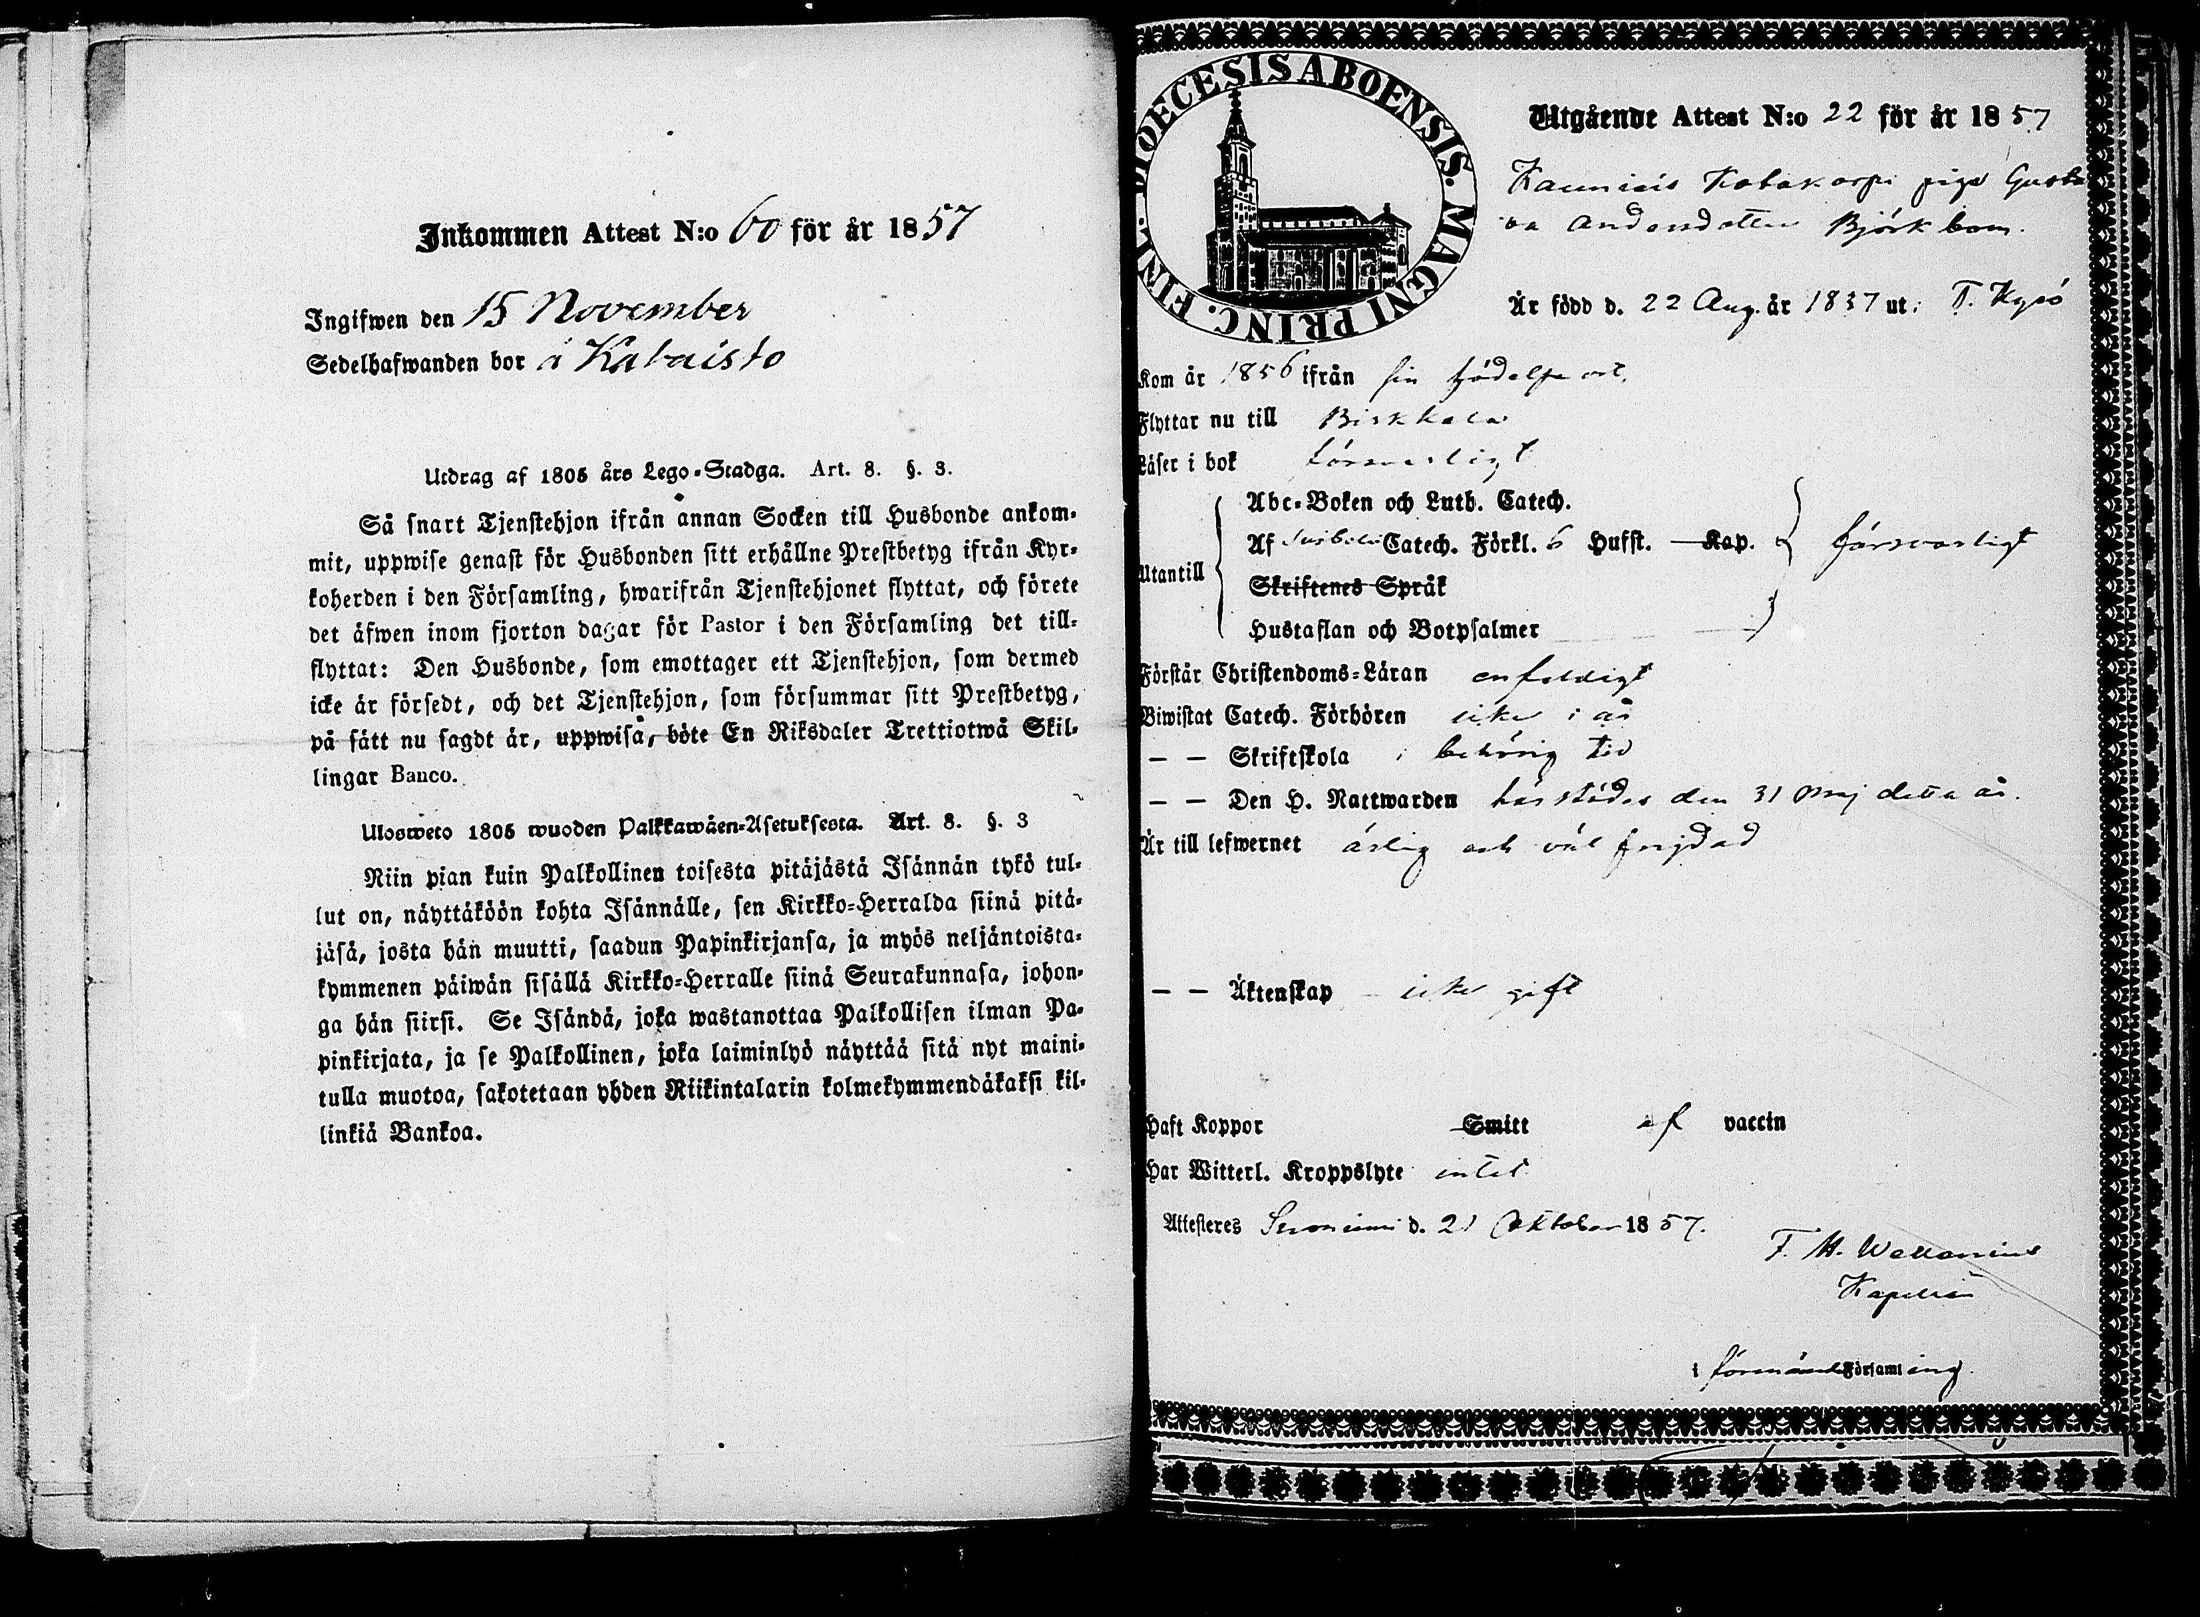 Inkommen Attest N:o 60 för år 1857
Ingifwen den 15 November
Sedelhafwanden bor å Kataisto
Utdrag af 1805 års Lego-Stadga. Art. 8. §. 3.
Så snart Tjenstehjon ifrån annan Socken till Husbonde ankom-
mit, uppwise genast för Husbonden sitt erhållne Prestbetyg ifrån Kyr-
koherden i den Församling, hwarifrån Tjenstehjonet flyttat, och förete
det äfwen inom fjorton dagar för Pastor i den Församling det till-
flyttat: Den Husbonde, som emottager ett Tjenstehjon, som dermed
icke är försedt, och det Tjenstehjon, som försummar sitt Prestbetyg,
på sätt nu sagdt är, uppwisa, böte En Riksdaler Trettiotwå Skil-
lingar Banco.
Ulosweto 1805 wuoden Palkkawäen-Asetuksesta. Art. 8. §. 3
Niin pian kuin Palkollinen toisesta pitäjästä Isännän tykö tul-
lut on, näyttäköön kohta Isännälle, sen Kirkko-Herralda siinä pitä-
jäsä, josta hän muutti, saadun Papinkirjansa, ja myös neljäntoista-
kymmenen päiwän sisällä Kirkko-Herralle siinä Seurakunnasa, johon-
ga hän siirsi. Se Isändä, joka wastanottaa Palkollisen ilman Pa-
pinkirjata, ja se Palkollinen, joka laiminlyö näyttää sitä nyt maini-
tulla muotoa, sakotetaan yhden Riikintalarin kolmekymmendäkaksi kil-
linkiä Bankoa.
DIOECESIS ABOENSIS. MAGNI PRINC. FINL.
Utgående Attest N:o 22 för år 1857
piga Gusta
va Andersdotter Björkbom.
Är född d. 22 Aug. år 1837 ut i T. Kyrö
Kom år 1856 ifrån sin födelse ort.
Flyttar nu till Birkkala
Läser i bok försvarligt
Abc-Boken och Luth. Catech.
Af Svebelii Catech. Förkl. 6 Hufst. Kap. försvarligt
Utantill
Skriftenes Språk
Hustaflan och Botpsalmer
Förstår Christendoms-Läran enfaldigt
Biwistat Catech. Förhören icke i år
— — Skriftskola i behörig tid
— — Den H. Nattwarden härstädes den 31 Maj detta år.
Är till lefwernet ärlig och väl frejdad
— — Äktenskap icke gift
Haft Koppor Smitt af vaccin
Har Witterl. Kroppslyte intet
Attesteras Suoniemi d. 21 Oktober 1857.
F. M. Wallenius
Kapellan
i förenämde Församling.